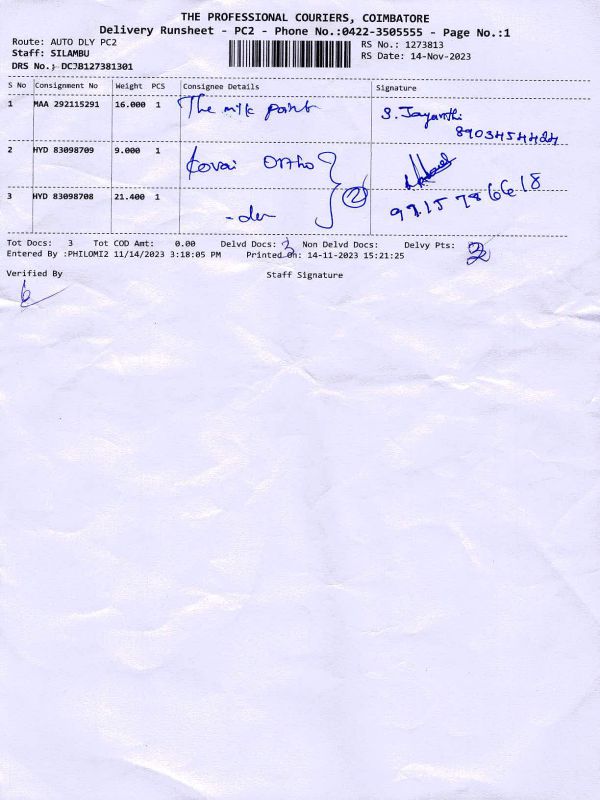 THE PROFESSIONAL COURIERS, COIMBATORE
Delivery Runsheet - PC2 - Phone No.:0422-3505555 - Page No.:1
Route: AUTO DLY PC2 RS No.: 1273813
Staff: SILAMBU RS Date: 14-Nov-2023
DRS No.: DCJB127381301
S No Consignment No Weight PCS Consignee Details Signature
1 MAA 292115291 16.000 1 The milk point S. Jayanthi
8903454424
2 HYD 83098709 9.000 1 Kovai Ortho
3 HYD 83098708 21.400 1 - do - 2 9715 78 6618
Tot Docs: 3 Tot COD Amt: 0.00 Delvd Docs: 3 Non Delvd Docs: Delvy Pts: 2
Entered By :PHILOMI2 11/14/2023 3:18:05 PM Printed On: 14-11-2023 15:21:25
Verified By Staff Signature